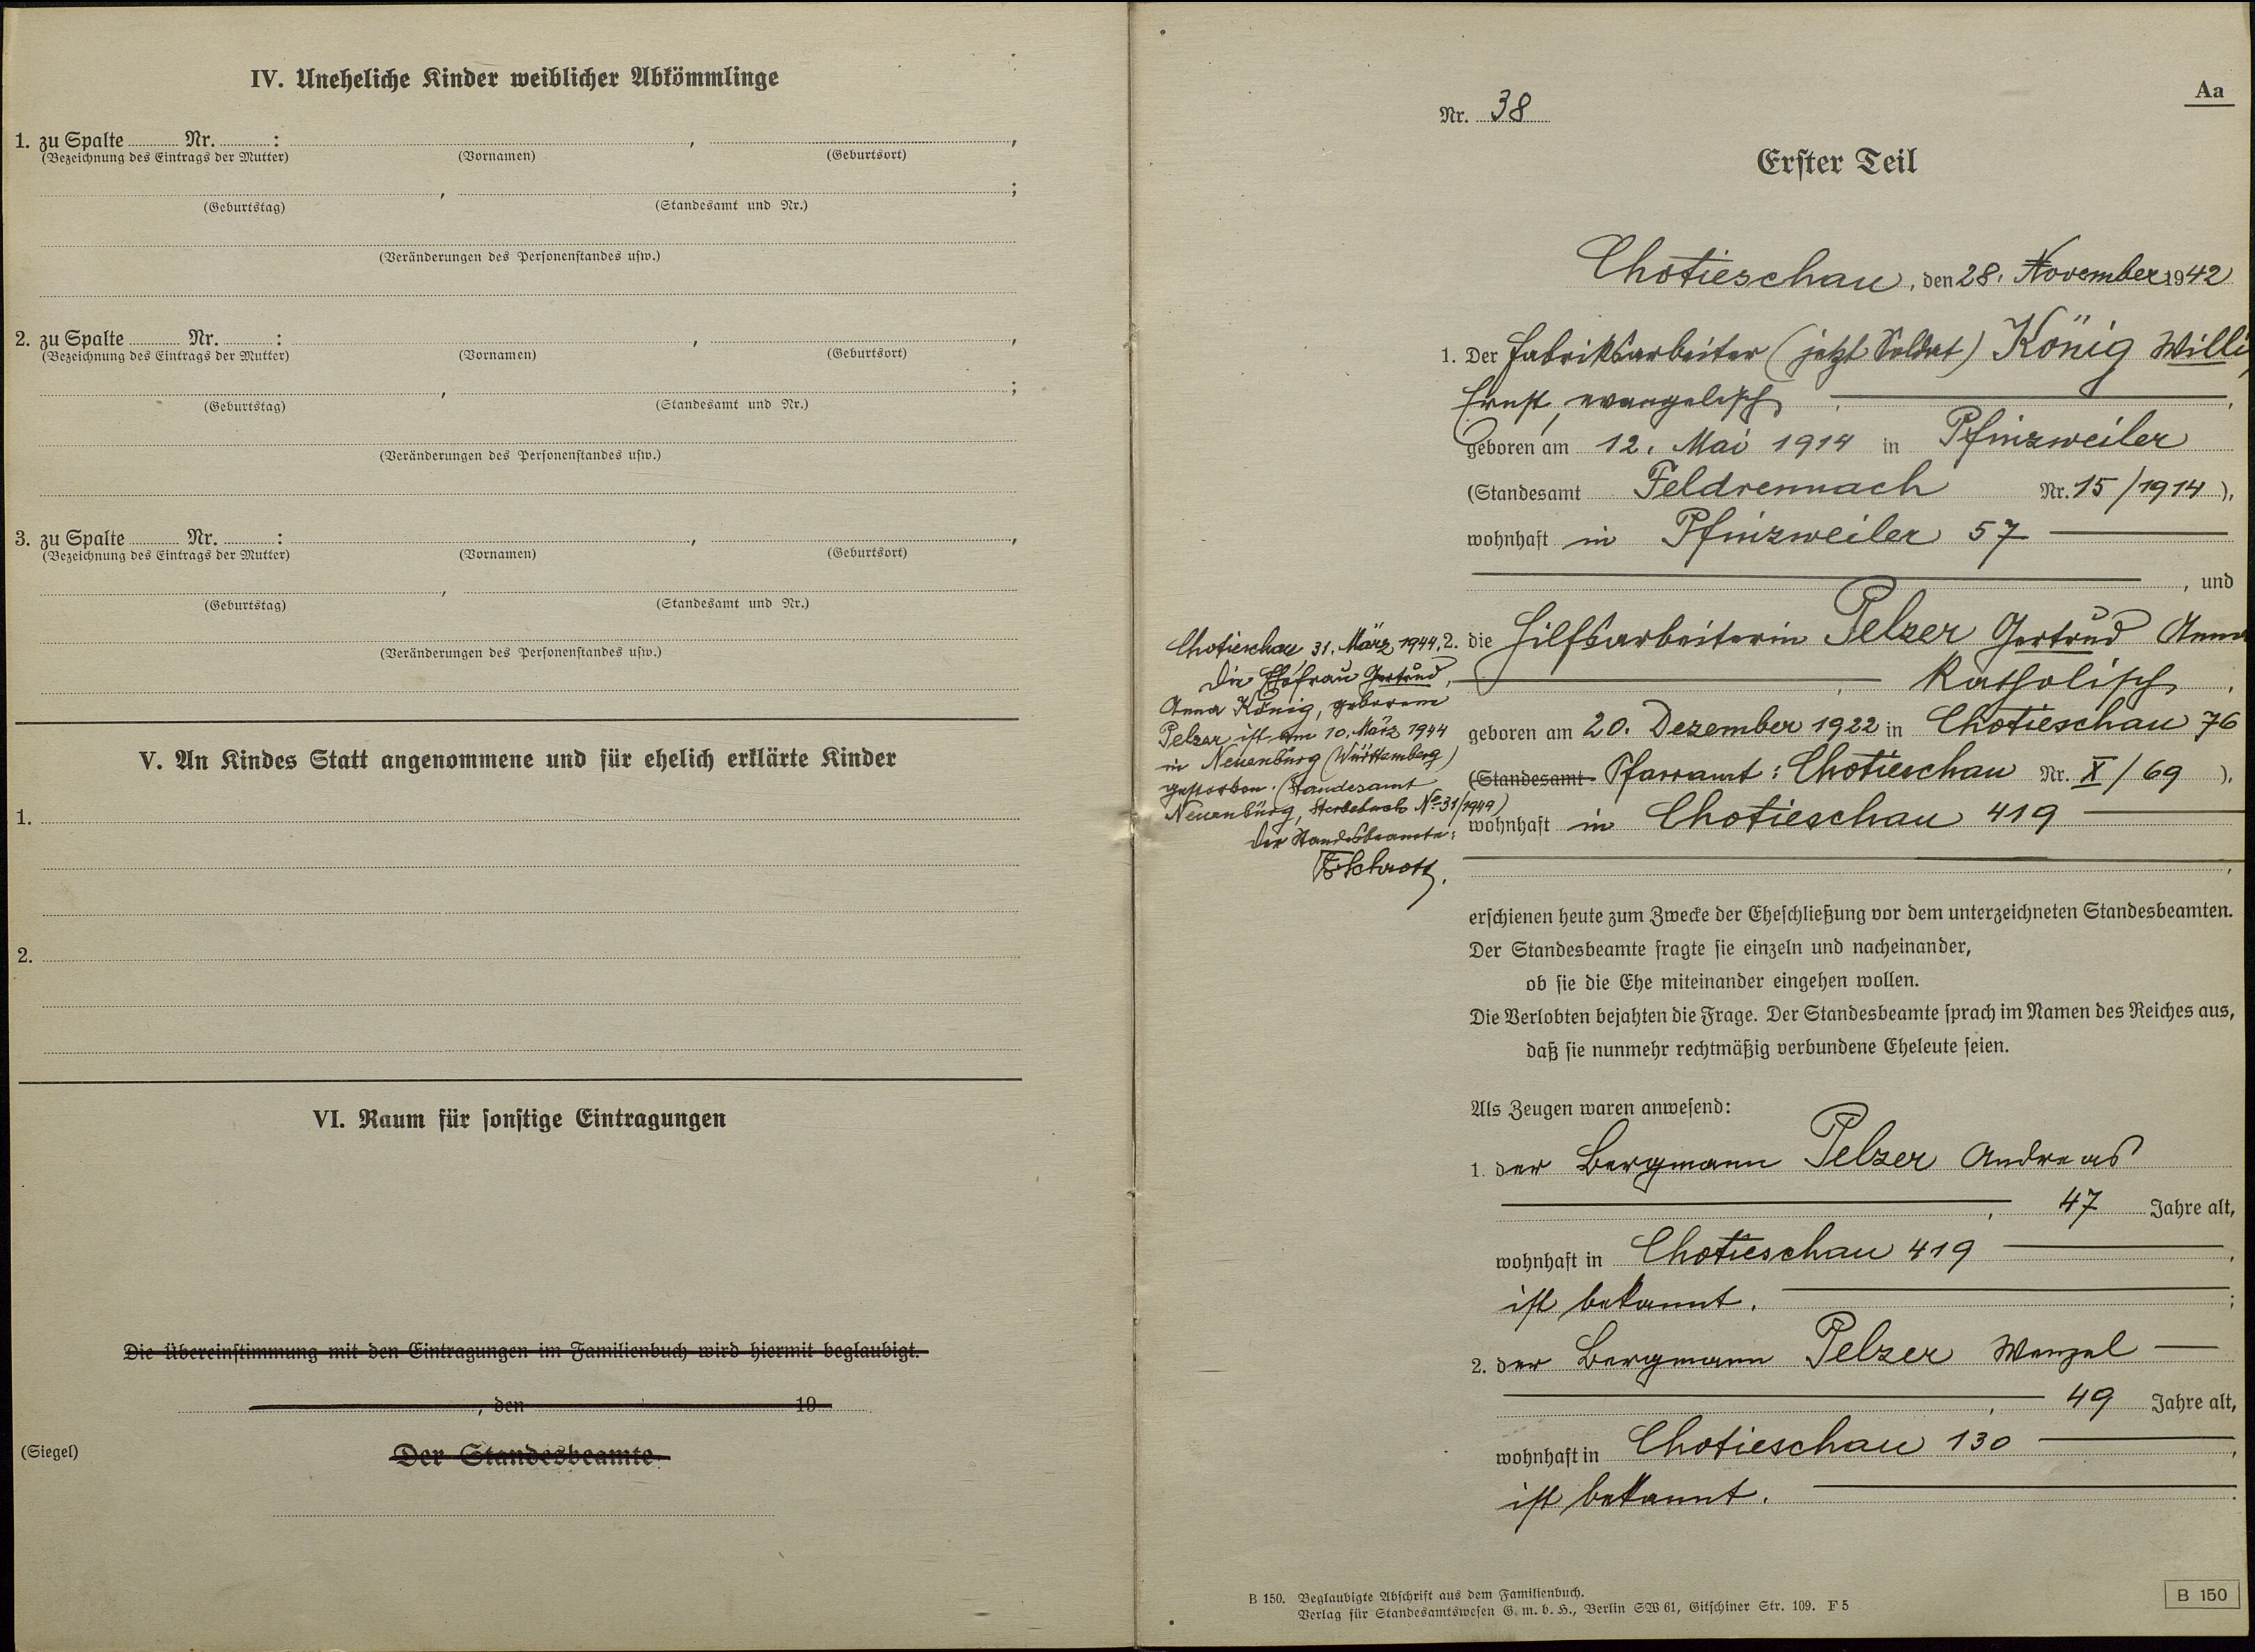 IV. Uneheliche Kinder weiblicher Abkömmlinge
1. zu Spalte Nr. : , ,
(Bezeichnung des Eintrags der Mutter) (Vornamen) (Geburtsort)
, ;
(Geburtstag) (Standesamt und Nr.)
(Veränderungen des Personenstandes usw.)
2. zu Spalte Nr. : , ,
(Bezeichnung des Eintrags der Mutter) (Vornamen) (Geburtsort)
, ;
(Geburtstag) (Standesamt und Nr.)
(Veränderungen des Personenstandes usw.)
3. zu Spalte Nr. : , ,
(Bezeichnung des Eintrags der Mutter) (Vornamen) (Geburtsort)
, ;
(Geburtstag) (Standesamt und Nr.)
(Veränderungen des Personenstandes usw.)
V. An Kindes Statt angenommene und für ehelich erklärte Kinder
1.
2.
VI. Raum für sonstige Eintragungen
Die Übereinstimmung mit den Eintragungen im Familienbuch wird hiermit beglaubigt.
, den 19
(Siegel) Der Standesbeamte
Aa
Nr. 38
Erster Teil
Chotieschau, den 28. November 1942
1. Der Fabriksarbeiter (jetzt Soldat) König Willi,
Ernst, evangelisch ,
geboren am 12. Mai 1914 in Pfinzweiler
(Standesamt Feldrennach Nr. 15/1914),
wohnhaft in Pfinzweiler 57
, und
2. die Hilfsarbeiterin Pelzer Gertrud Anna
, katholisch ,
geboren am 20. Dezember 1922 in Chotieschau 76
(Standesamt Pfarramt: Chotieschau Nr. X/69 ),
wohnhaft in Chotieschau 419
,
Chotieschau 31. März 1944.
Die Ehefrau Gertrud,
Anna König, geborene
Pelzer ist am 10. März 1944
in Neuenbürg (Württemberg)
gestorben. (Standesamt
Neuenbürg, Sterbebuch No 31/1949)
Der Standesbeamte:
erschienen heute zum Zwecke der Eheschließung vor dem unterzeichneten Standesbeamten.
Der Standesbeamte fragte sie einzeln und nacheinander,
ob sie die Ehe miteinander eingehen wollen.
Die Verlobten bejahten die Frage. Der Standesbeamte sprach im Namen des Reiches aus,
daß sie nunmehr rechtmäßig verbundene Eheleute seien.
Als Zeugen waren anwesend:
1. der Bergmann Pelzer Andreas
, 47 Jahre alt,
wohnhaft in Chotieschau 419 ,
ist bekannt. ;
2. der Bergmann Pelzer Wenzel
, 49 Jahre alt,
wohnhaft in Chotieschau 130 ,
ist bekannt. .
B 150. Beglaubigte Abschrift aus dem Familienbuch.
Verlag für Standesamtswesen G. m. b. H., Berlin SW 61, Gitschiner Str. 109. F 5
B 150